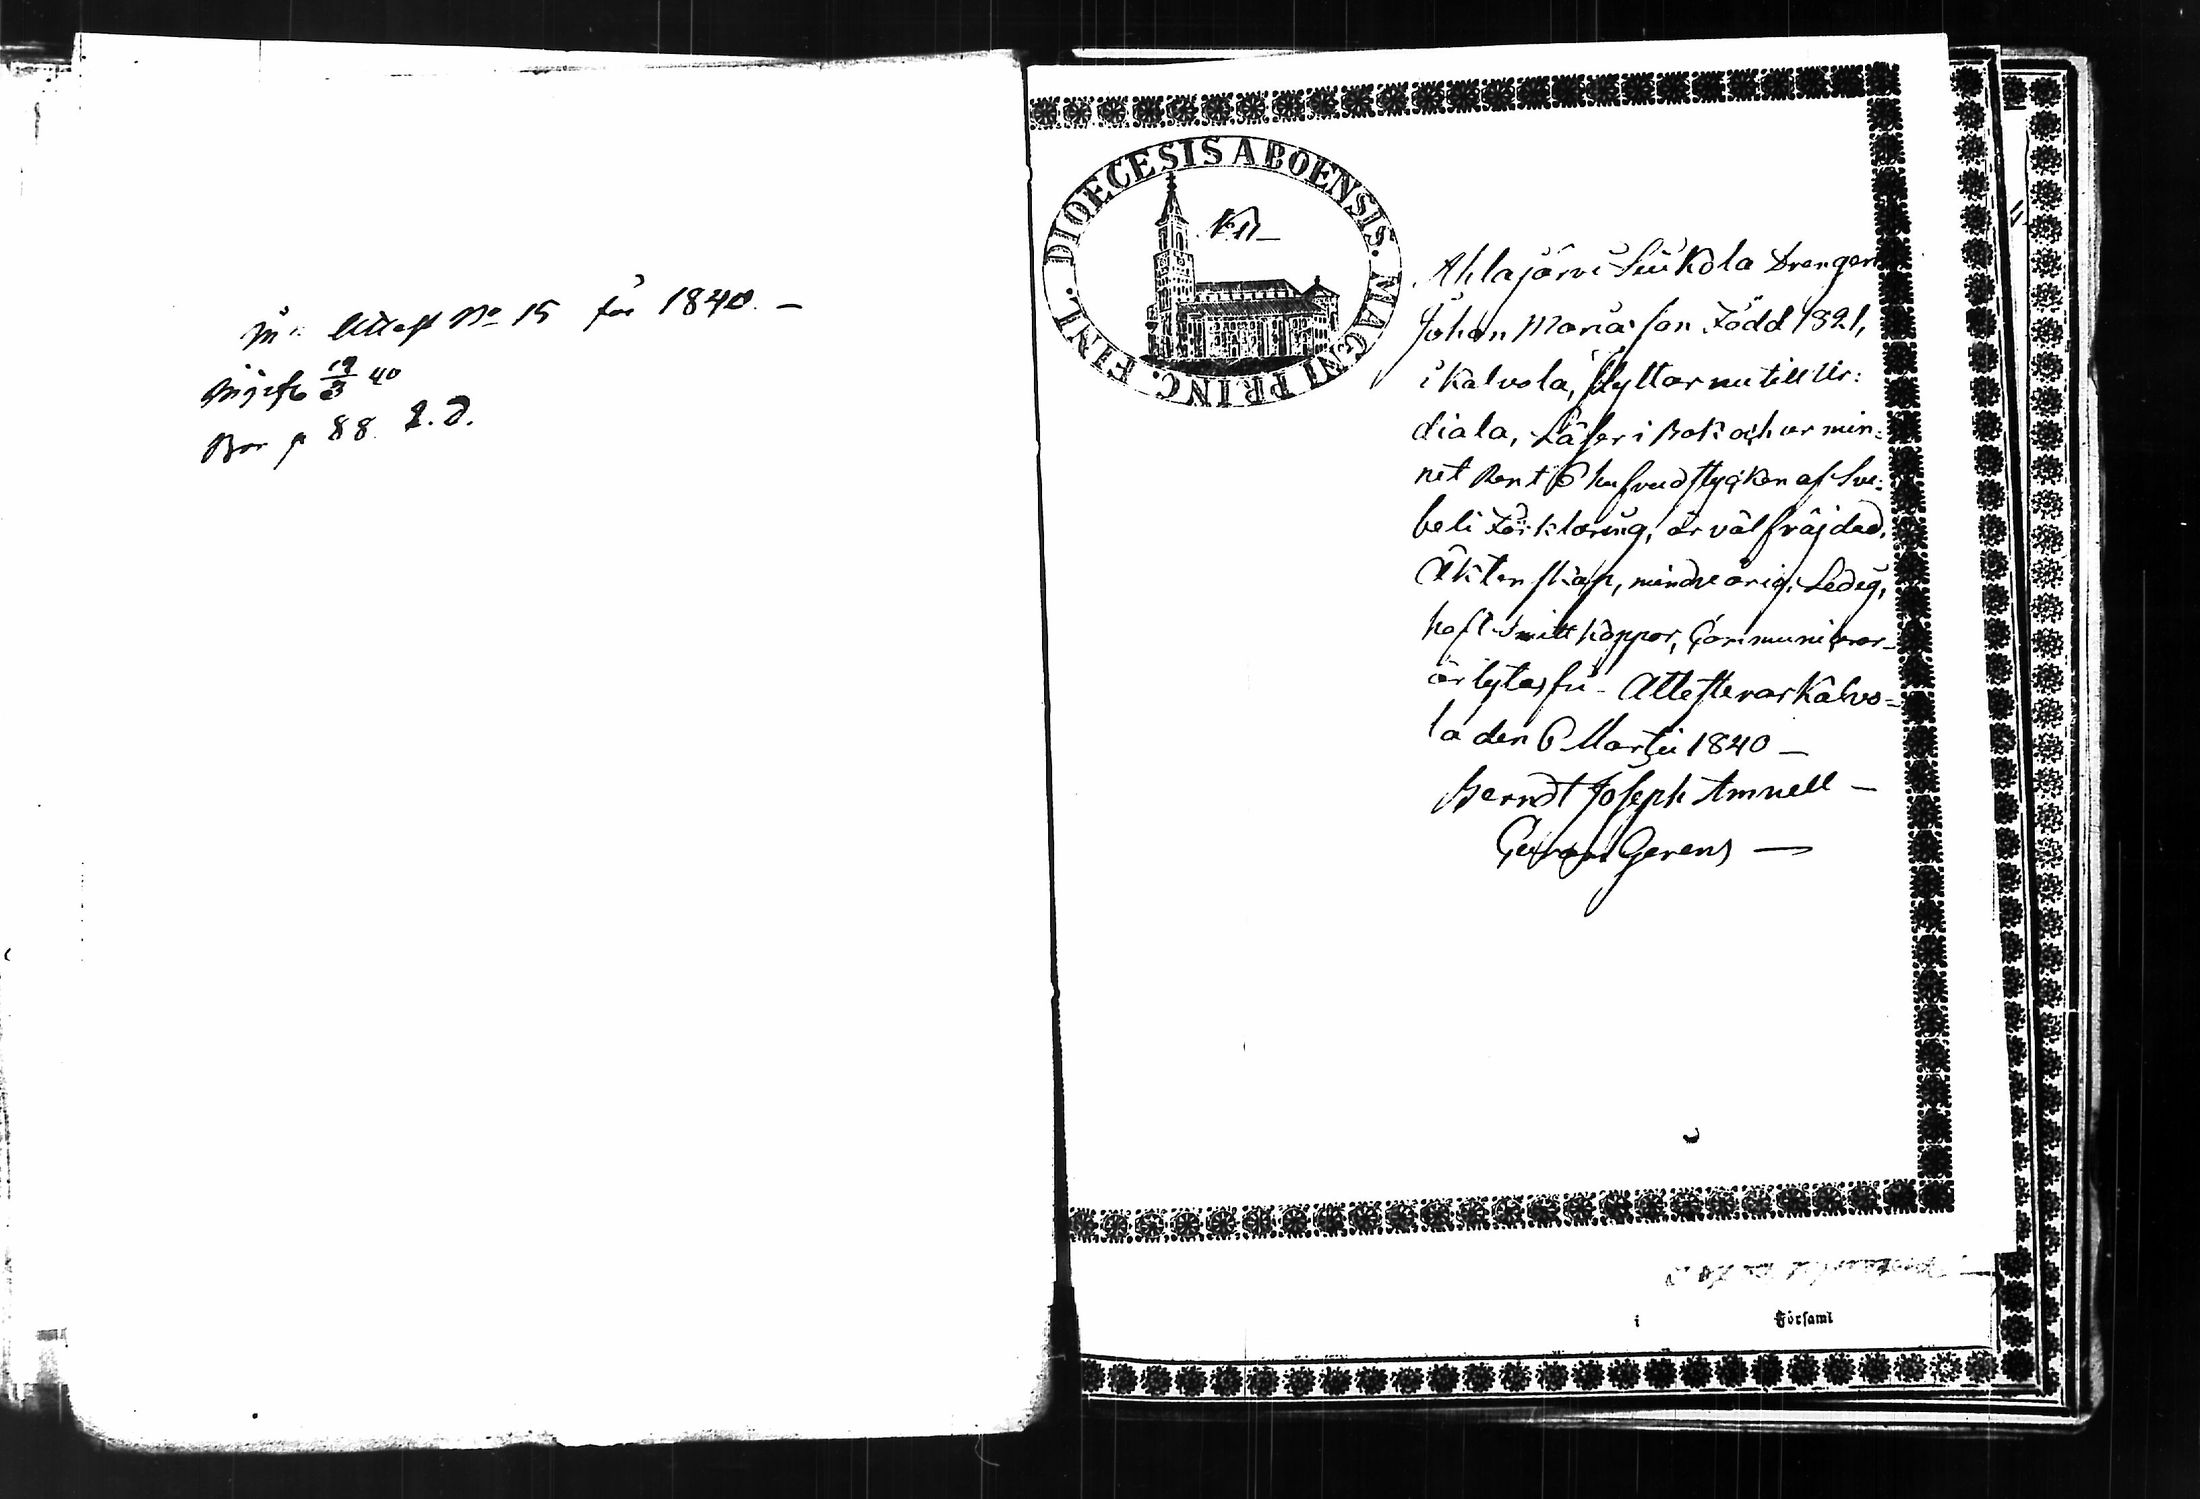 Attest No 15 för 1840. –
19/3 40
Bor p 88. L. D.
DIOECESIS ABOENSIS. MAGNI PRINC. FINL.
Ahlajärvi Siukola Drengen
Johan Mariæson Född 1821,
i Kalvola, flyttar nu till Ur:
diala, Läser i Bok och ur min:
net Rent 6 hufvudstycken af Sve:
beli Förklaring, är väl fräjdad,
Äktenskap, mindreårig, Ledig,
haft Smittkoppor, Communicerar
är lytesfri – Attesterar Kalvo=
la den 6 Martii 1840 –
Berndt Joseph Amnell –
Gerens –
i Församl